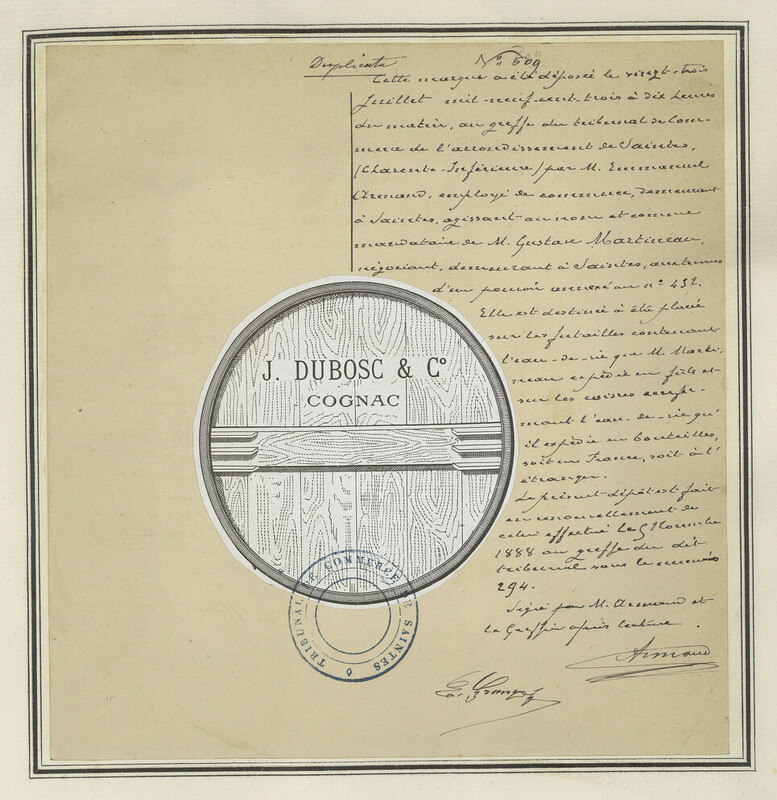 Duplicata
N° 609
Cette marque a été déposée le vingt-trois
Juillet mil-neuf-cent-trois à dix heures
du matin, au greffe du tribunal de Com-
merce de l'arrondissement de Saintes,
(Charente-Inférieure) par M. Emmanuel
Armand, employé de commerce, demeurant
à Saintes, agissant au nom et comme
mandataire de M. Gustave Martineau,
négociant, demeurant à Saintes, aux termes
d'un pouvoir annexé au n° 432.
Elle est destinée à être placée
sur les futailles contenant
l'eau-de-vie que M. Marti-
neau expédie en fûts et
sur les caisses renfer-
mant l'eau-de-vie qu'
il expédie en bouteilles,
soit en France, soit à l'
étranger.
Le présent dépôt est fait
en renouvellement de
celui effectué le 9 Novembre
1888 au greffe du dit
tribunal sous le numéro
294.
Signé par M. Armand et
le Greffier après lecture.
Armand
J. DUBOSC & Co
COGNAC
TRIBUNAL DE COMMERCE DE SAINTES